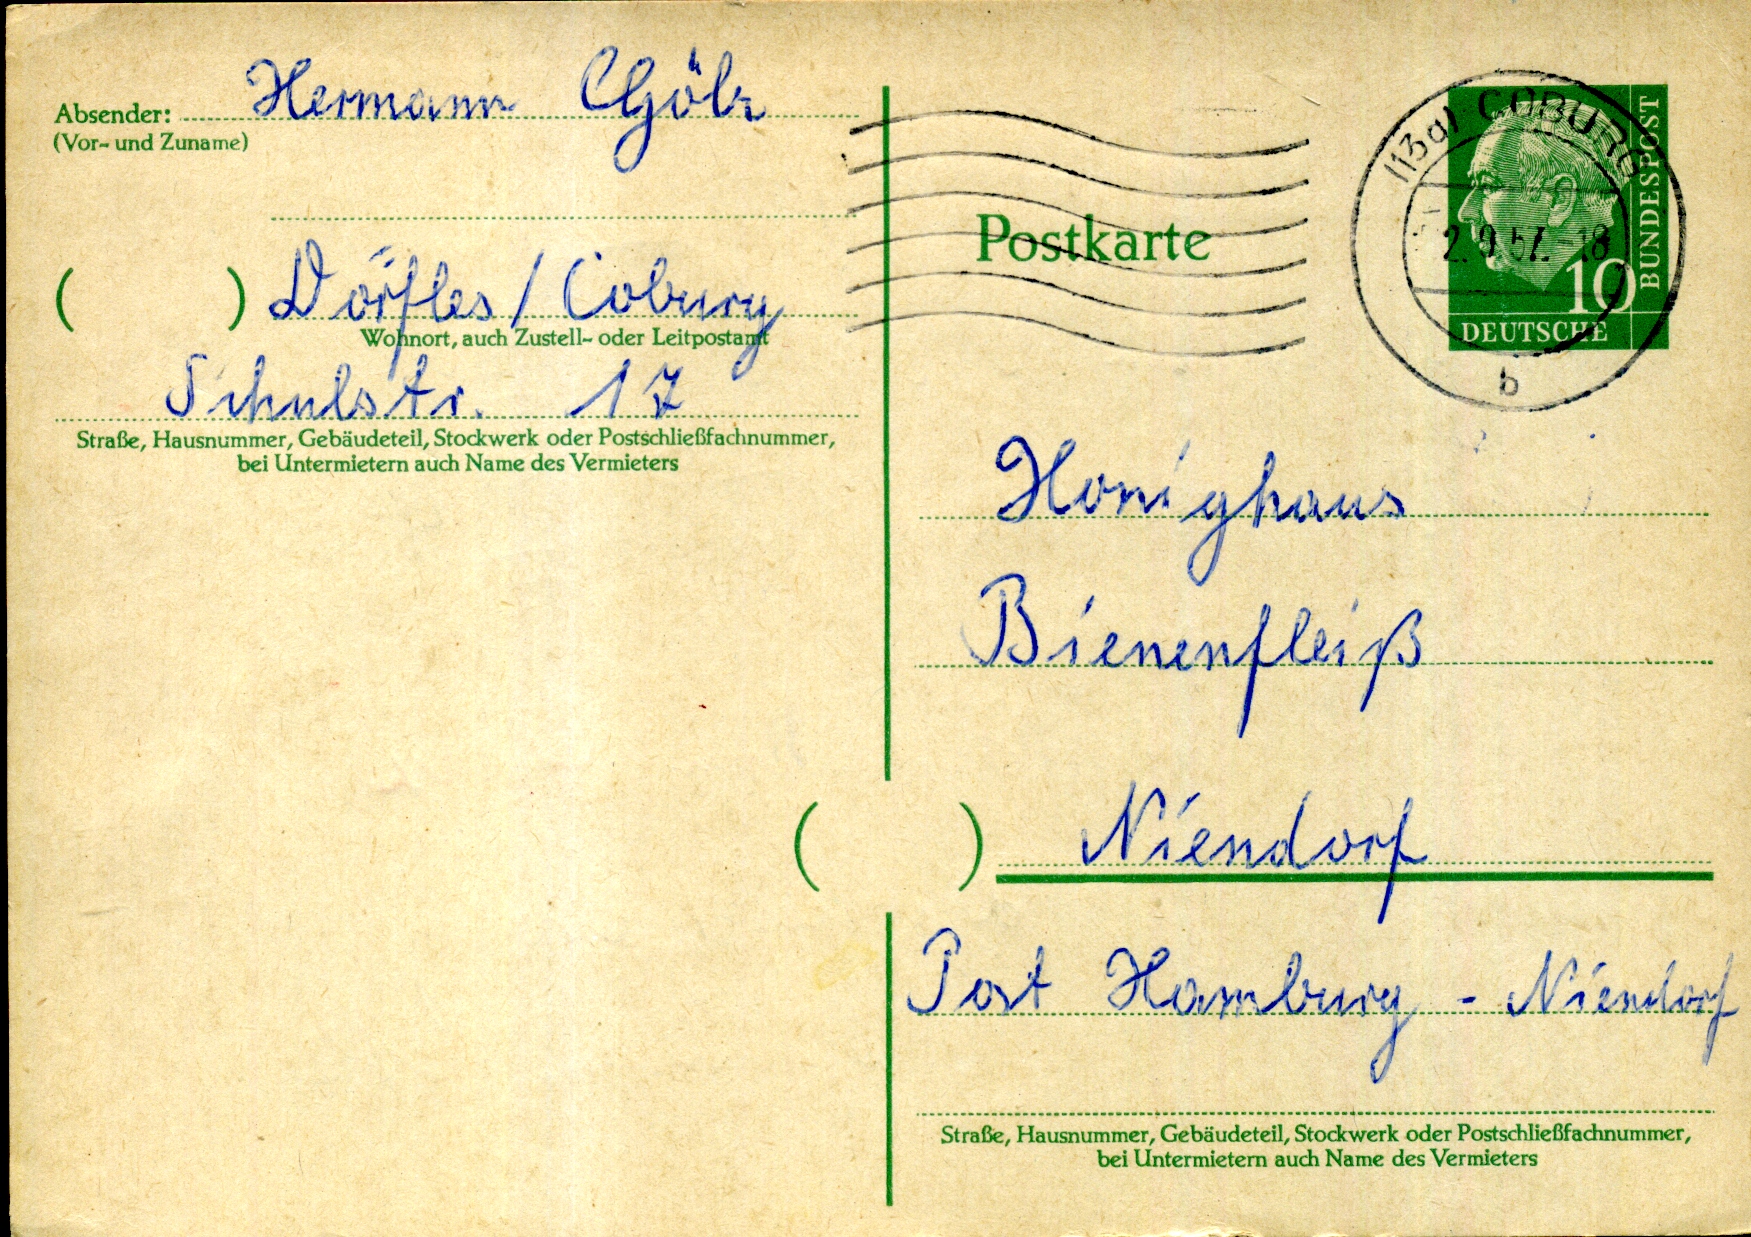 Absender: Hermann
(Vor- und Zuname)
( ) Dörfles / Coburg
Wohnort, auch Zustell- oder Leitpostamt
Schulstr. 17
Straße, Hausnummer, Gebäudeteil, Stockwerk oder Postschließfachnummer,
bei Untermietern auch Name des Vermieters
(13a) COBURG
2. 9. 57.-18
b
10
DEUTSCHE
BUNDESPOST
Postkarte
Honighaus
Bienenfleiß
( ) Niendorf
Post Hamburg - Niendorf
Straße, Hausnummer, Gebäudeteil, Stockwerk oder Postschließfachnummer,
bei Untermietern auch Name des Vermieters